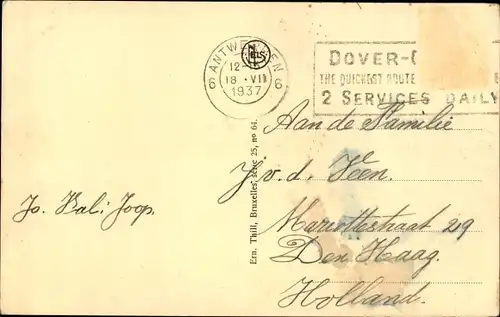 ANTWERPEN
12-
18 · VII
1937
6 6
DOVER-
THE QUICKEST ROUTE
2 SERVICES DAILY
Aan de Familie
J. v. d. Veen.
Mariottestraat 29
Den Haag.
Holland.
Jo. Joop.
Ern. Thill, Bruxelles, série 25, no 64.